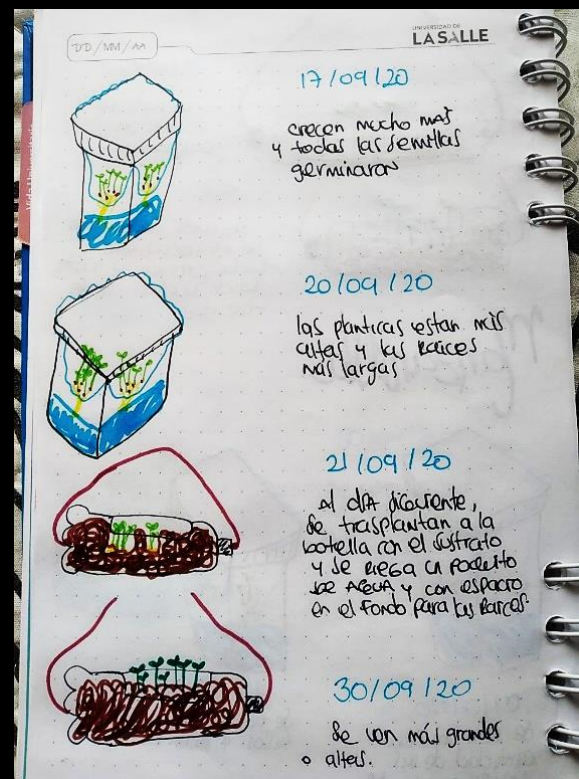 DD/MM/AA
UNIVERSIDAD DE
LASALLE
17/09/20
crecen mucho mas
y todas las semillas
germinaron
20/09/20
las planticas estan más
altas y las raices
más largas
21/09/20
al día siguiente,
se trasplantan a la
botella con el sustrato
y se riega un poquito
de AGUA y con espacio
en el fondo para las raices.
30/09/20
Se ven más grandes
o altas.